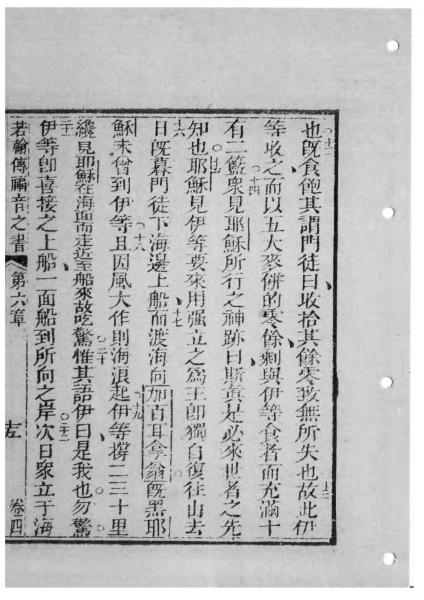 十二也既食飽其謂門徒曰收拾其餘零致無所失也十三故此伊
等收之而以五大麥餅的零餘剩與伊等食者而充滿十
有二籃十四衆見耶穌所行之神跡曰斯眞是必來世者之先
知也十五耶穌見伊等要來用强立之爲王卽獨自復往山去
十六日既暮門徒下海邊上船十七而渡海向加百耳拿翁既黑耶
穌未曾到伊等十八且因風大作則海浪起十九伊等撐二三十里
纔見耶穌在海面而走近至船來故吃驚二十惟其語伊曰是我也勿驚
二一伊等卽喜接之上船一面船到所向之岸二二次日衆立于海
若翰傳福音之書 第六章 左 卷四